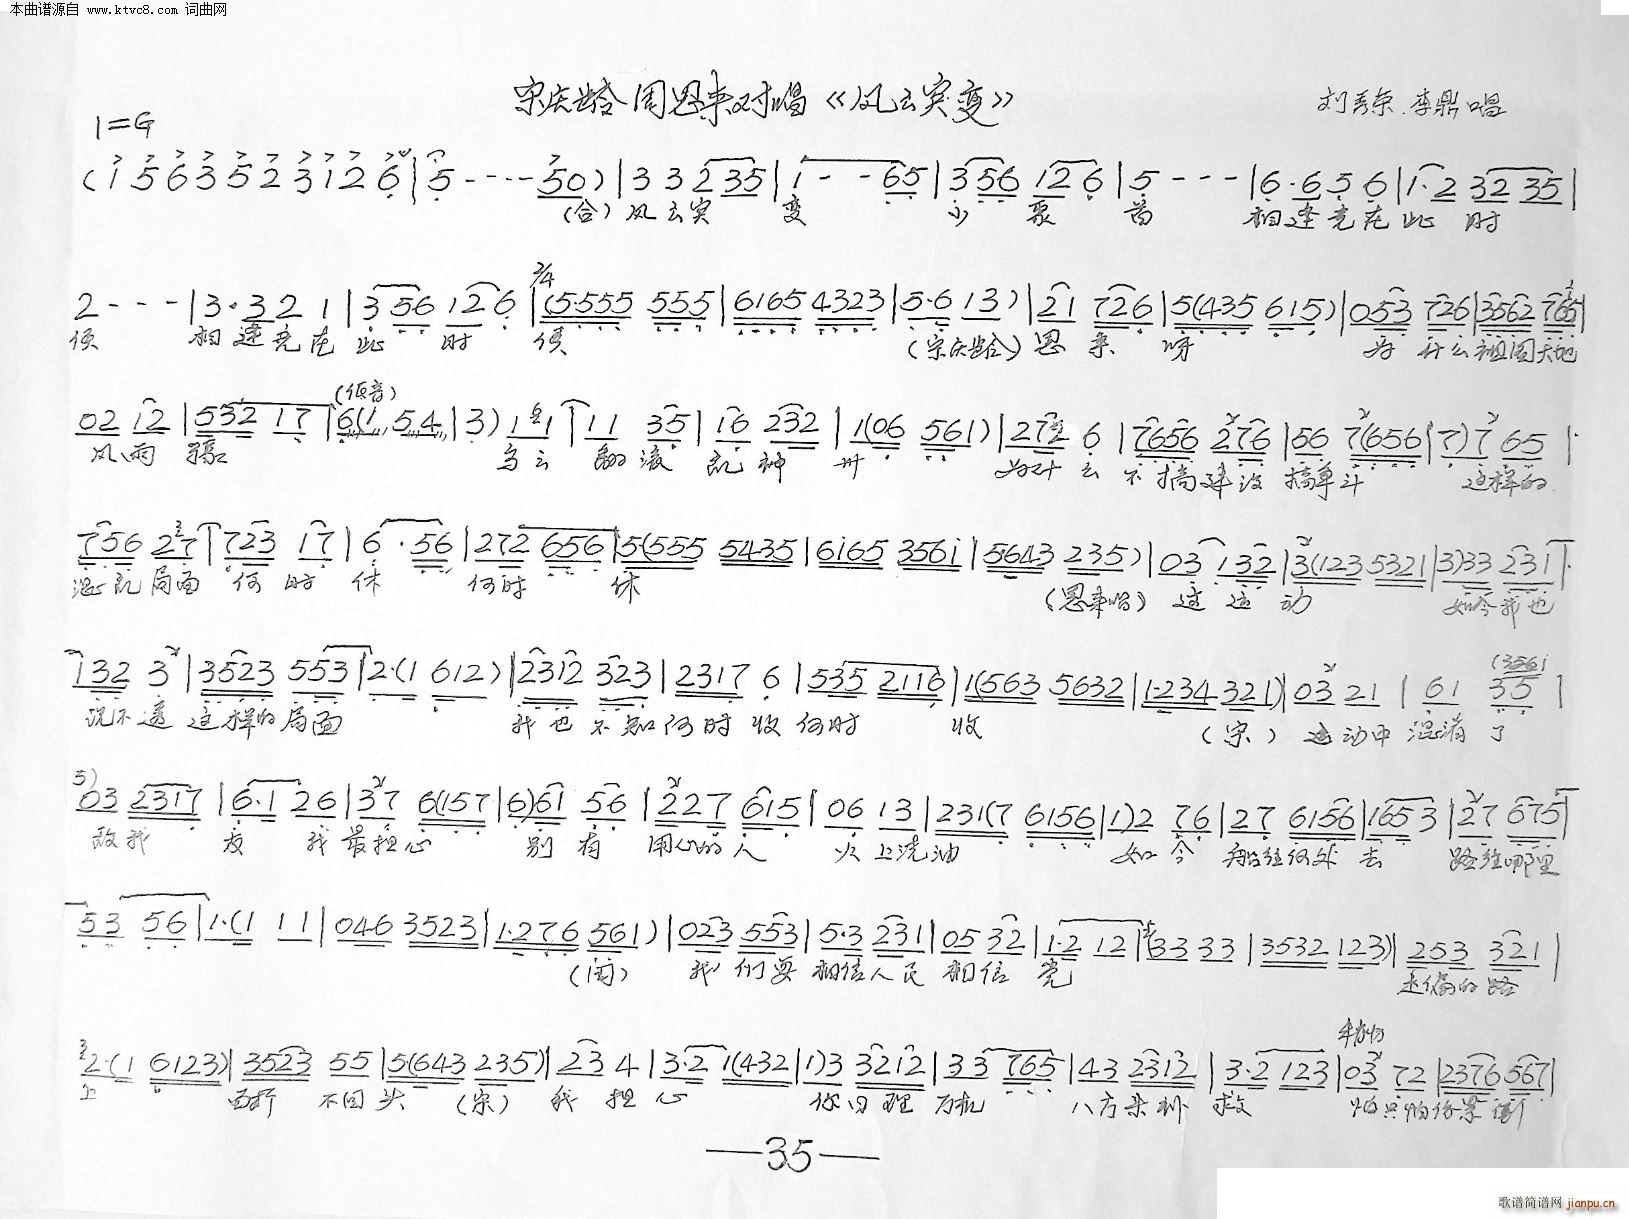 本曲谱源自 www.ktvc8.com 词曲网
宋庆龄周恩来对唱《风云突变》
刘秀荣.李鼎 唱
1=G
(1 5 6 3 5 2 3 1 2 6 | 5 - - - - 50) | 3 3 2 35 | 1 - - 65 | 3 56 12 6 | 5 - - - | 6·6 5 6 | 1·2 32 35 |
(合) 风云突 变 少 聚 首 相逢竟在此 时
2 - - - | 3·3 2 1 | 3 56 12 6 | 2/4 (5·555 555 | 6165 4323 | 5·6 13) | 21 726 | 5(435 615) | 053 726 | 3562 765 |
候 相逢竟在 此 时 候 (宋庆龄) 恩 来 呀 为 什么 祖国大地
(低音)
02 12 | 532 17 | 6(1 54 | 3) 1 1 | 11 35 | 16 232 | 1(06 561) | 272 6 | 7656 276 | 56 7(656 | 7)7 65 |
风雨 骤 乌云 翻滚 乱神 州 为什么 不搞建设 搞争斗 这样的
756 27 | 723 17 | 6·56 | 272 656 | 5(555 5435 | 6165 3561 | 5643 235) | 03 132 | 3(123 5321 | 3)33 231 |
混乱局面 何 时 休 何时 休 (恩来唱) 这 运 动 如今我也
132 3 | 3523 553 | 2·(1 612) | 2312 323 | 2317 6 | 535 2116 | 1(563 5632 | 1·234 321) | 03 21 | 61 35 |
(3561
说不透 这样的局面 我也 不知何时收 何时 收 (宋) 运动中 混淆 了
5)
03 2317 | 6·1 26 | 37 6(157 | 6)61 56 | 227 615 | 06 13 | 231(7 6156 | 1)2 76 | 27 6156 | 1653 | 27 675 |
敌我 友 我 最担心 别 有 用心的人 火上浇油 如今 船往何处 去 路往哪里
53 56 | 1·(1 11 | 046 3523 | 1·276 561) | 023 553 | 5·3 231 | 05 32 | 1·2 12 | 33 33 | 3532 123) | 253 321 |
(周) 我 们要 相信人民 相信 党 走偏的路
2·(1 6123) | 3523 55 | 5(643 235) | 23 4 | 3·2 1(432 | 1)3 3212 | 33 765 | 43 2312 | 3·2 123 | 03 72 | 2376 567 |
上 不回头 (宋) 我 担 心 你日理 万机 八方来 救 怕只怕你
—35—
歌谱简谱网 jianpu.cn